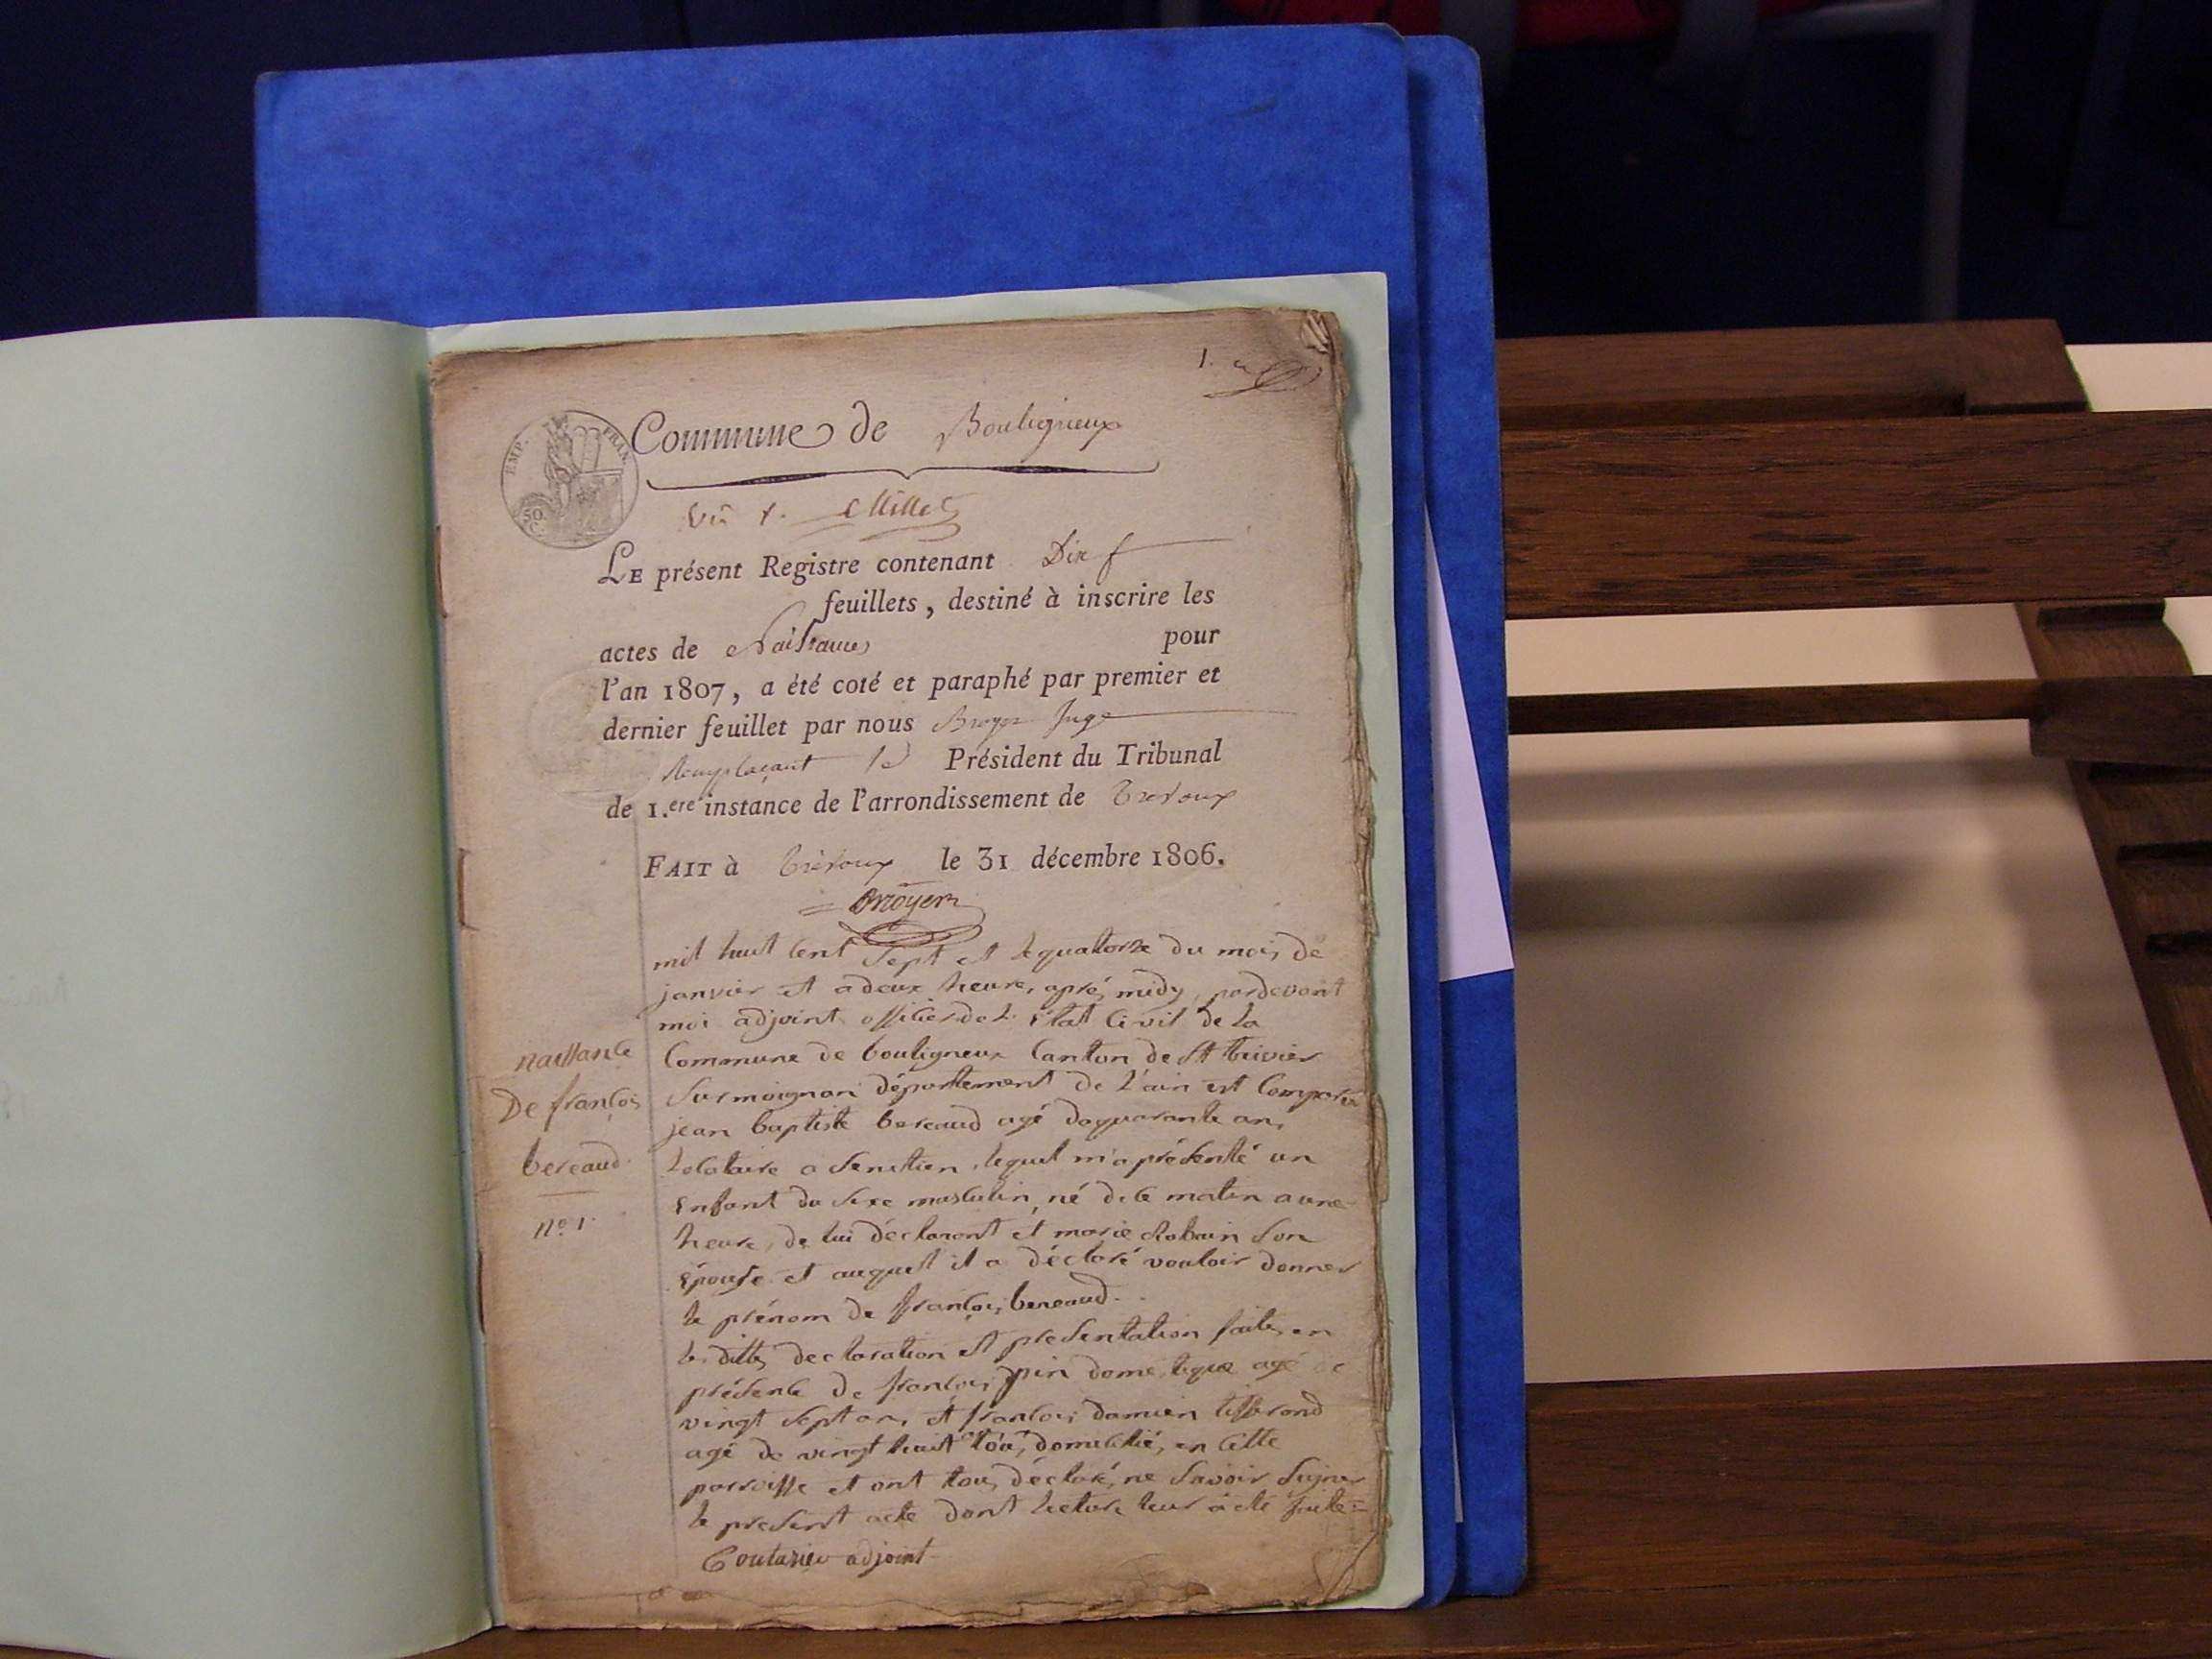 1.
EMP. FRAN.
50.
C.
Commune de Bouligneux
Vu
LE présent Registre contenant Dix f
feuillets, destiné à inscrire les
actes de Naissances pour
l'an 1807, a été coté et paraphé par premier et
dernier feuillet par nous Broyer Juge
Remplaçant le Président du Tribunal
de 1.ere instance de l'arrondissement de Trevoux
FAIT à Trévoux le 31 décembre 1806.
Broyer
mil huit cent sept et le quatorze du mois de
janvier et a deux heures aprés midy, pardevant
moi adjoint officier de l'état civil de la
Commune de bouligneux Canton de St trivier
sur moignan département de l'ain est comparu
jean baptiste bereaud agé de quarante ans
locataire a lequel m'a présenté un
Enfant du sexe masculin, né de ce matin a une
heure, de lui déclarant et marie son
épouse et auquel il a déclaré vouloir donner
le prénom de françois bereaud.
les dittes declaration et presentation faites en
présence de françois pin domestique agé de
vingt sept ans et françois damien tisserand
agé de vingt huit tous domicilié, en cette
parroisse et ont tous déclaré, ne savoir signer
le present acte dont lecture leur a été faite =
adjoint
naissance
De françois
bereaud
nº 1.